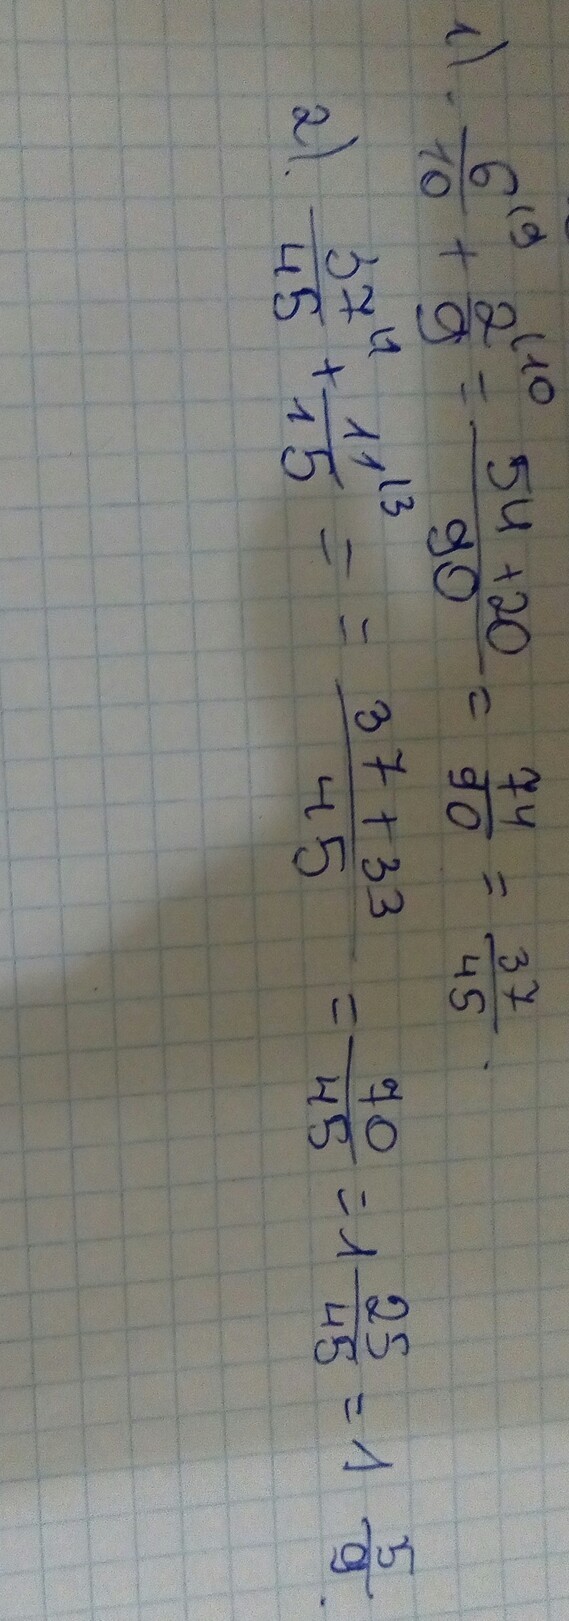 1) 6/10 + 2/9 = 54+20/90 = 74/90 = 37/45.
2). 37/45 + 11/15 = = 37+33/45 = 70/45 = 1 25/45 = 1 5/9.